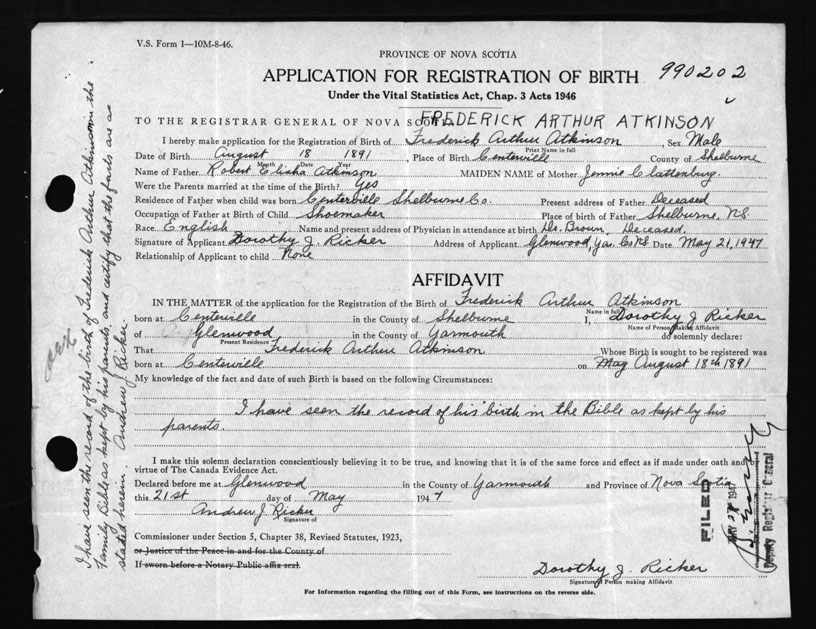 V.S. Form 1—10M-8-46.
PROVINCE OF NOVA SCOTIA
APPLICATION FOR REGISTRATION OF BIRTH 990202
Under the Vital Statistics Act, Chap. 3 Acts 1946
TO THE REGISTRAR GENERAL OF NOVA SCOTIA FREDERICK ARTHUR ATKINSON
I hereby make application for the Registration of Birth of Frederick Arthur Atkinson Sex Male
Print Name in full
Date of Birth August 18 1891, Place of Birth Centerville County of Shelburne
Month Date Year
Name of Father Robert Elisha Atkinson MAIDEN NAME of Mother Jennie Clattenburg.
Were the Parents married at the time of the Birth? Yes
Residence of Father when child was born Centerville Shelburne Co. Present address of Father Deceased
Occupation of Father at Birth of Child Shoemaker Place of birth of Father Shelburne, N.S.
Race English Name and present address of Physician in attendance at birth Dr. Brown, Deceased.
Signature of Applicant Dorothy J. Ricker Address of Applicant Glenwood, Yar. Co. N.S. Date May 21, 1947
Relationship of Applicant to child None
AFFIDAVIT
IN THE MATTER of the application for the Registration of the Birth of Frederick Arthur Atkinson
Name in full
born at Centerville in the County of Shelburne I, Dorothy J Ricker
Name of Person Making Affidavit
of Glenwood in the County of Yarmouth do solemnly declare:
Present Residence
That Frederick Arthur Atkinson Whose Birth is sought to be registered was
born at Centerville on May August 18th 1891
My knowledge of the fact and date of such Birth is based on the following Circumstances:
I have seen the record of his birth in the Bible as kept by his
parents.
I make this solemn declaration conscientiously believing it to be true, and knowing that it is of the same force and effect as if made under oath and by
virtue of The Canada Evidence Act.
Declared before me at Glenwood in the County of Yarmouth and Province of Nova Scotia
this 21st day of May 1947
Andrew J. Ricker
Signature of
Commissioner under Section 5, Chapter 38, Revised Statutes, 1923,
or Justice of the Peace in and for the County of
If sworn before a Notary Public affix seal.
Dorothy J. Ricker
Signature of Person making Affidavit
For Information regarding the filling out of this Form, see instructions on the reverse side.
I have seen the record of the birth of Frederick Arthur Atkinson in the
family Bible as kept by his parents, and certify that the facts are as
stated herein. Andrew J Ricker.
FILED
MAY 1947
Deputy Registrar General